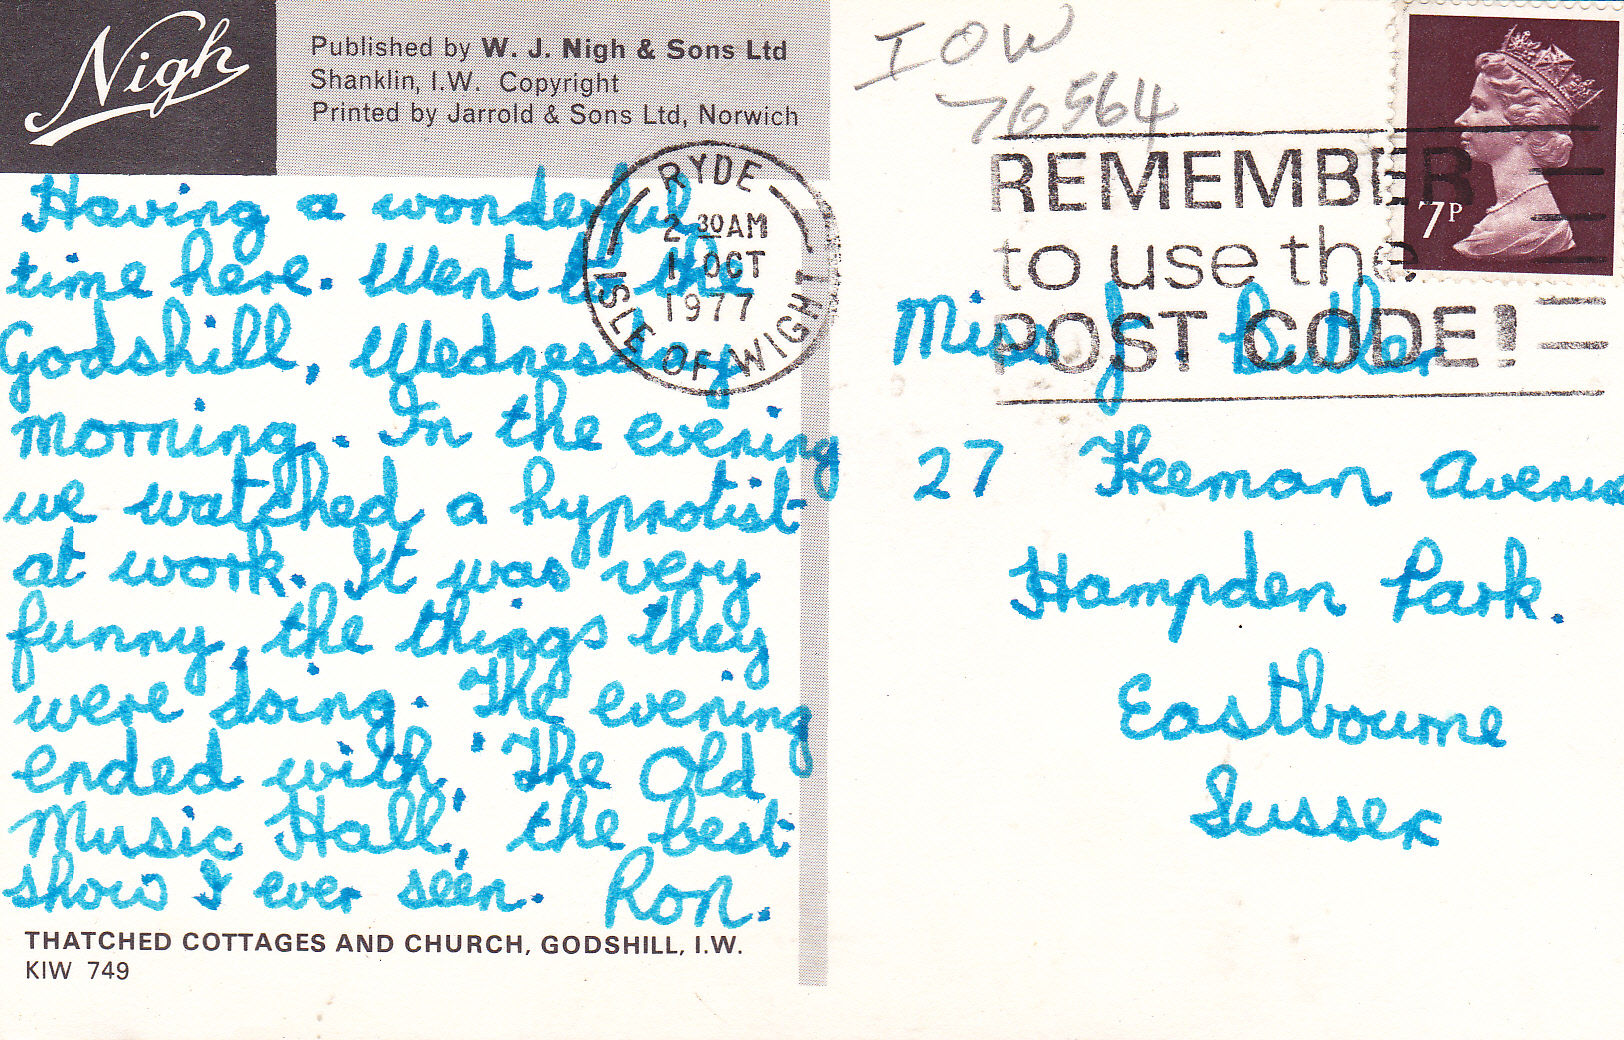 Nigh
Published by W. J. Nigh & Sons Ltd
Shanklin, I.W. Copyright
Printed by Jarrold & Sons Ltd, Norwich
IOW
76564
7P
RYDE
2 30AM
1 OCT
1977
ISLE OF WIGHT
REMEMBER
to use the
POST CODE!
Having a wonderful
time here. Went to the
Godshill, Wednesday
morning. In the evening
we watched a hypnotist
at work. It was very
funny, the things they
were doing. The evening
ended with, "The Old
Music Hall, the best
show I ever seen. Ron.
Miss J. Butler
27 Freeman Avenue
Hampden Park.
Eastbourne
Sussex
THATCHED COTTAGES AND CHURCH, GODSHILL, I.W.
KIW 749